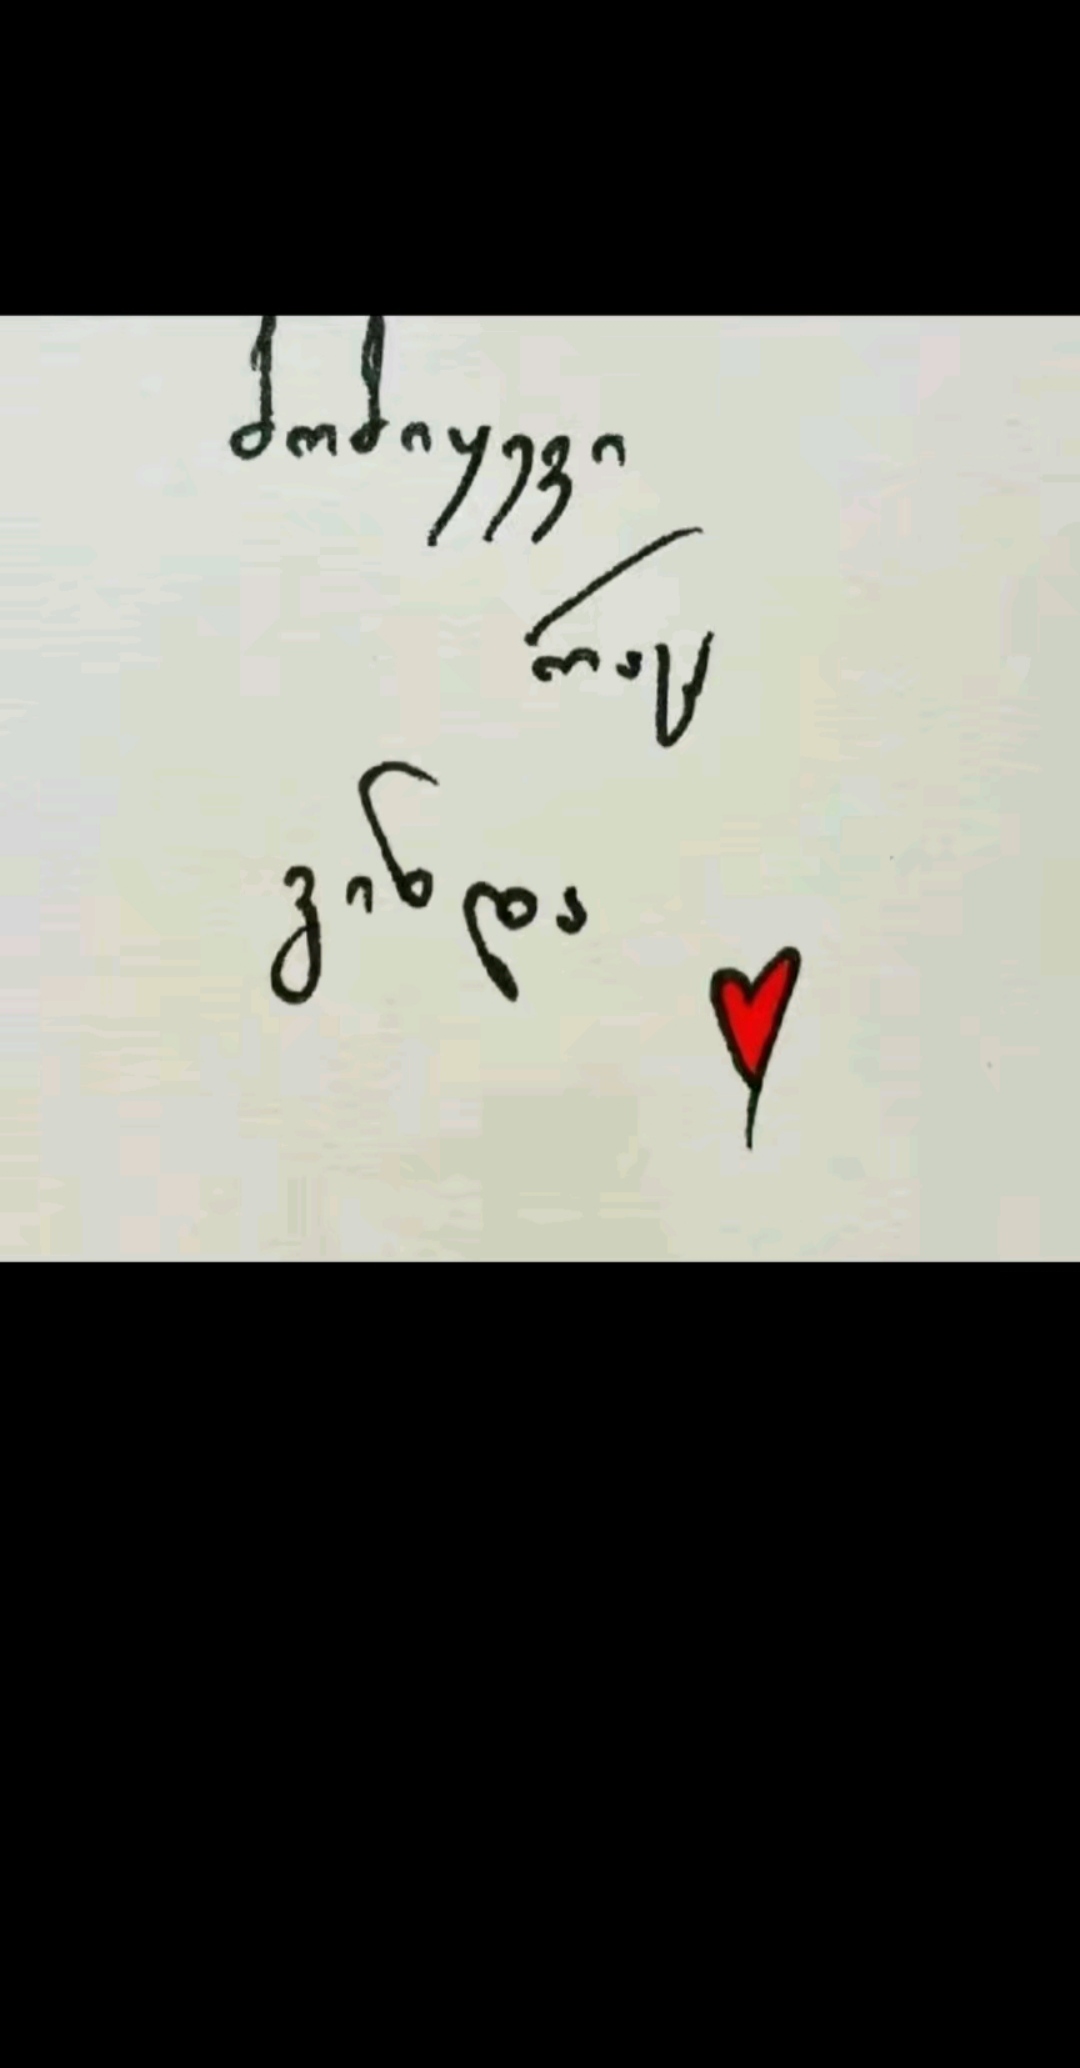 მომიყევი
რაც
გინდა